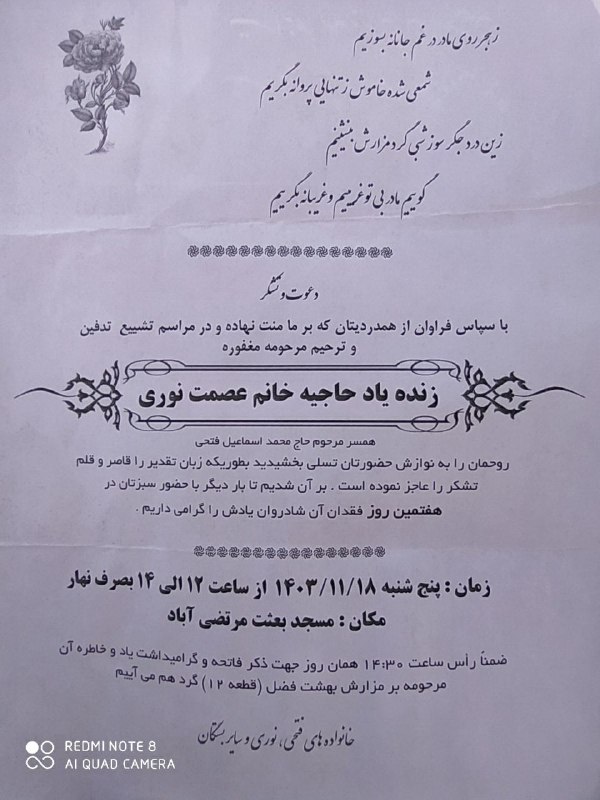 زهجر روی مادر در غم جانانه بسوزیم
شمعی شده خاموش ز تنهایی پروانه بگریم
زین درد جگر سوز شبی گرد مزارش بنشینیم
گوییم مادر بی تو غمیم و غریبانه بگرییم
دعوت و تشکر
با سپاس فراوان از همدردیتان که بر ما منت نهاده و در مراسم تشییع تدفین
و ترحیم مرحومه مغفوره
زنده یاد حاجیه خانم عصمت نوری
همسر مرحوم حاج محمد اسماعیل فتحی
روحمان را به نوازش حضورتان تسلی بخشیدید بطوریکه زبان تقدیر را قاصر و قلم
تشکر را عاجز نموده است . بر آن شدیم تا بار دیگر با حضور سبزتان در
هفتمین روز فقدان آن شادروان یادش را گرامی داریم .
زمان : پنج شنبه ۱۴۰۳/۱۱/۱۸ از ساعت ۱۲ الی ۱۴ بصرف نهار
مکان : مسجد بعثت مرتضی آباد
ضمناً رأس ساعت ۱۴:۳۰ همان روز جهت ذکر فاتحه و گرامیداشت یاد و خاطره آن
مرحومه بر مزارش بهشت فضل (قطعه ۱۲) گرد هم می آییم
خانواده های فتحی، نوری و سایر بستگان
REDMI NOTE 8
AI QUAD CAMERA